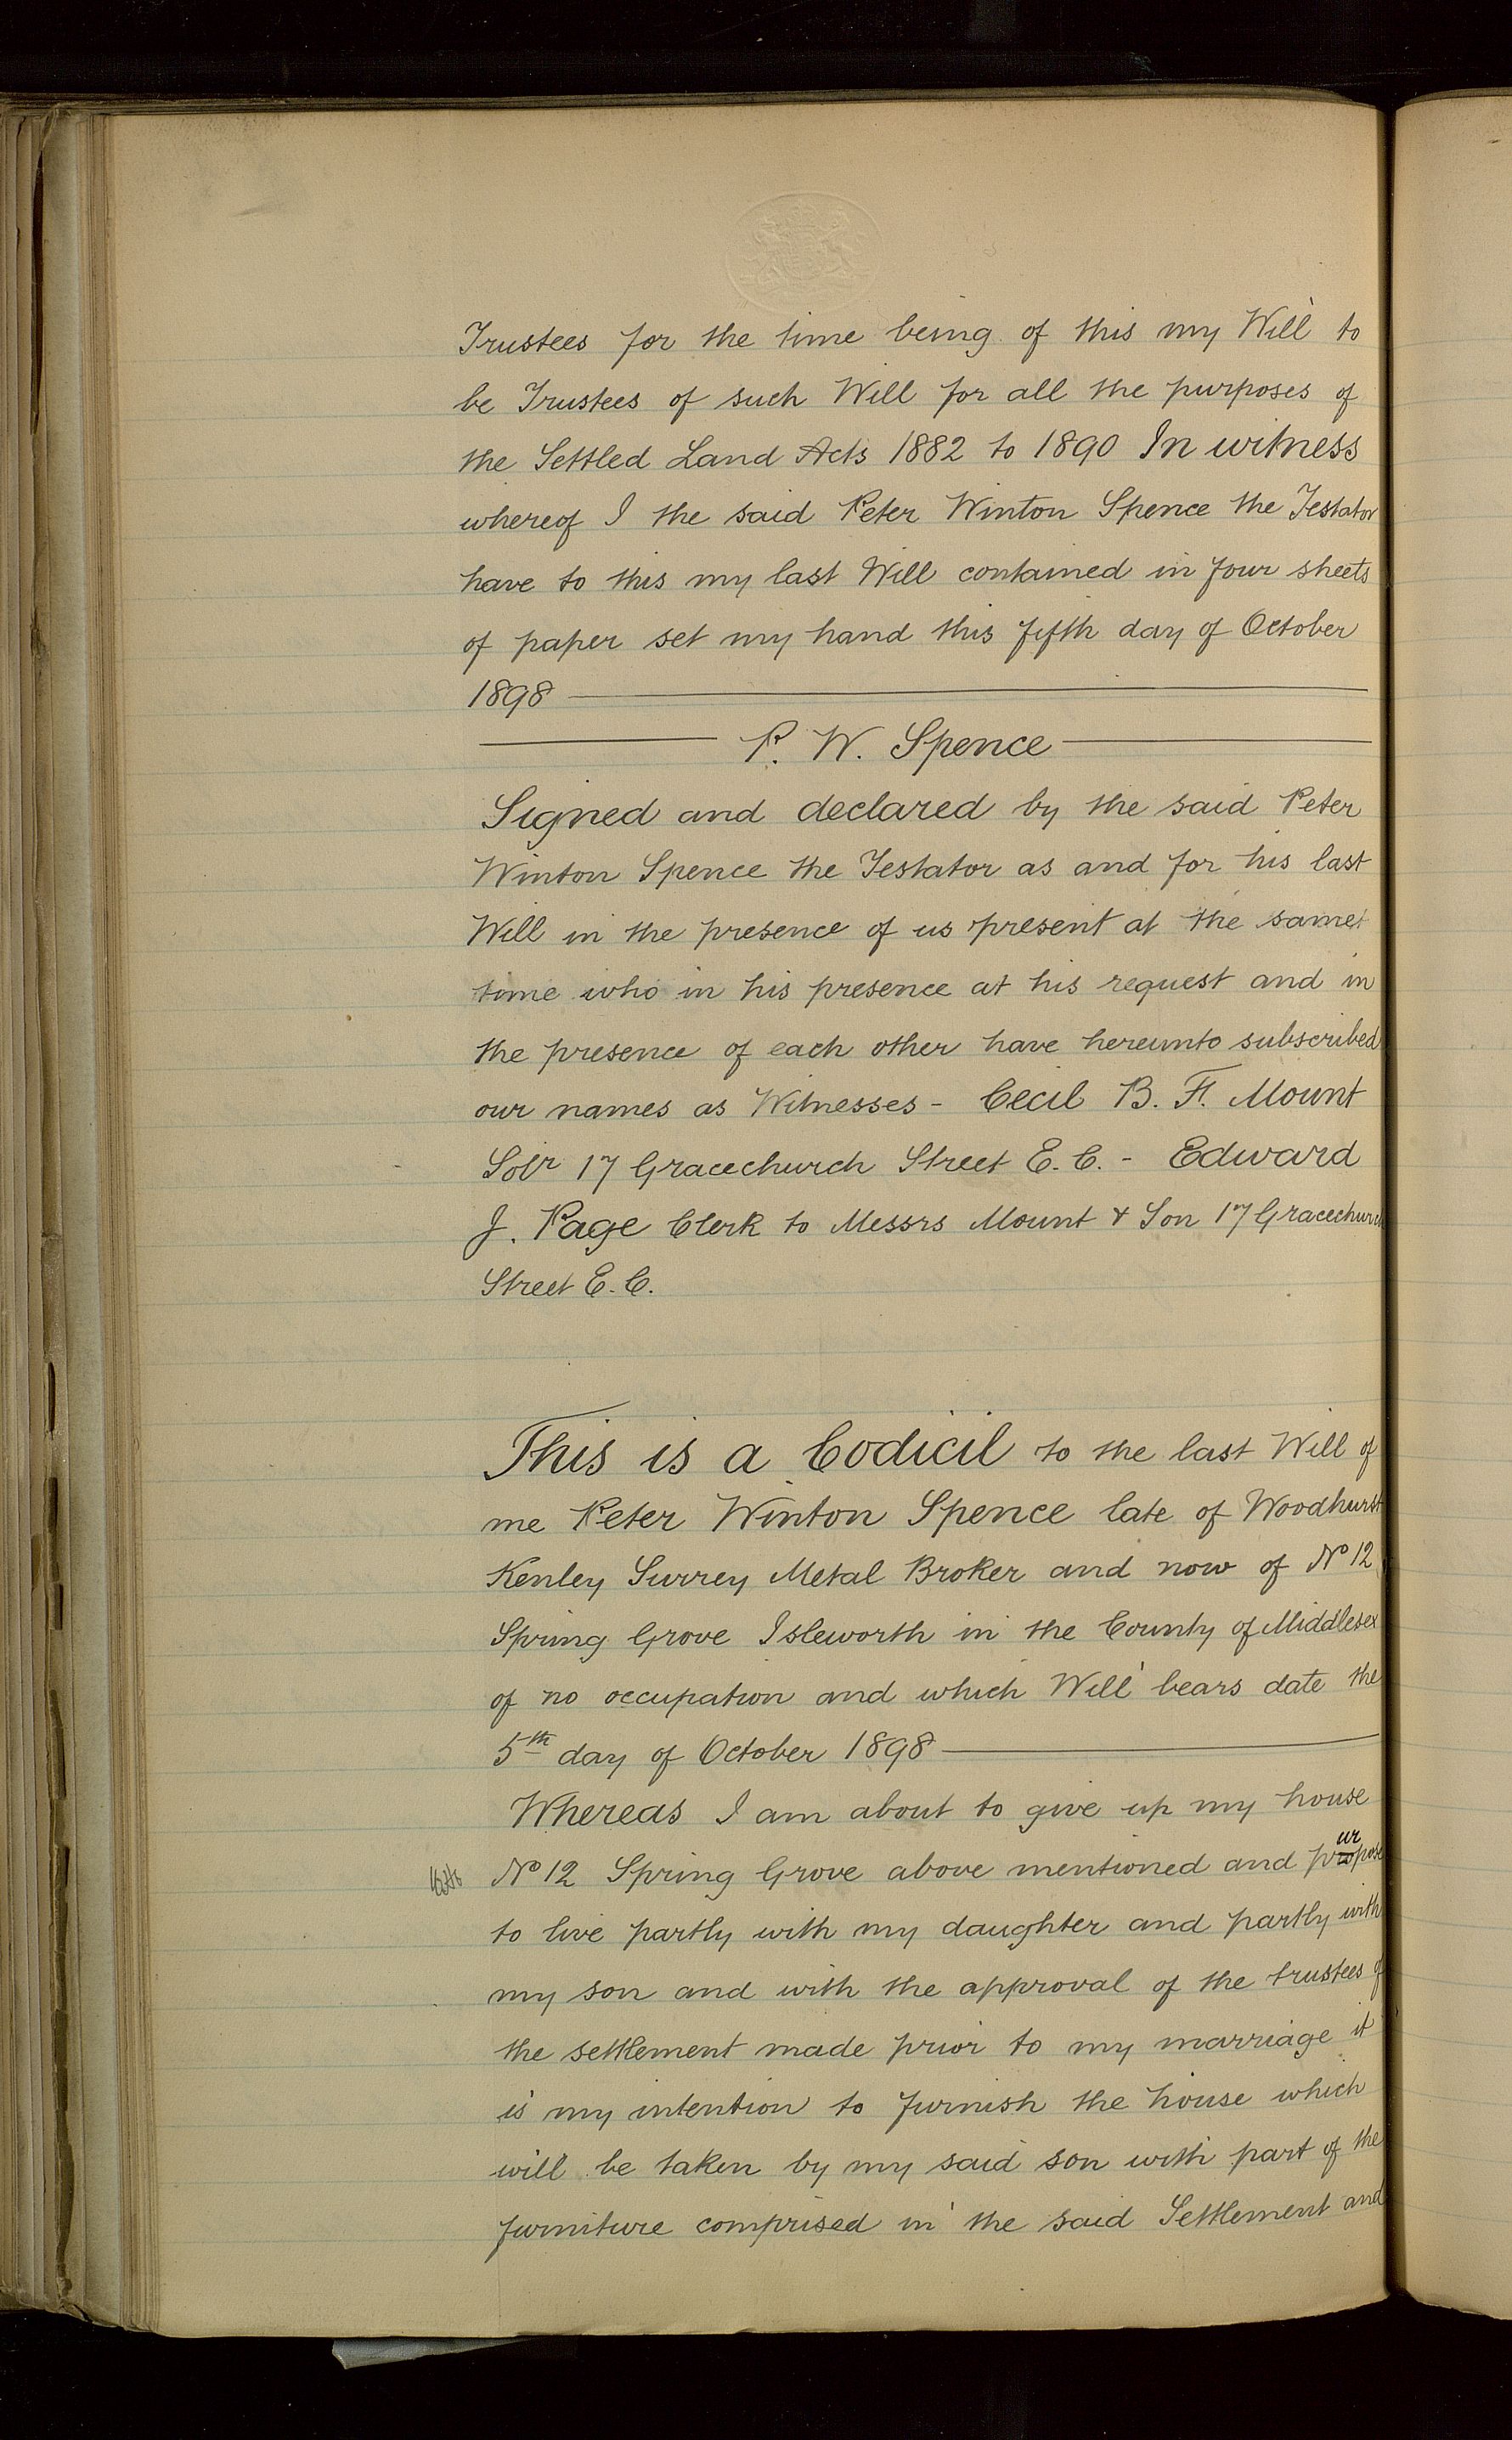 Trustees for the time being of this my Will to
be Trustees of such Will for all the purposes of
the Settled Land Acts 1882 to 1890 In witness
whereof I the said Peter Winton Spence the Testator
have to this my last Will contained in four sheets
of paper set my hand this fifth day of October
1898
P. W. Spence
Signed and declared by the said Peter
Winton Spence the Testator as and for his last
Will in the presence of us present at the same
time who in his presence at his request and in
the presence of each other have hereunto subscribed
our names as Witnesses - Cecil B. F. Mount
Solr 17 Gracechurch Street E.C. - Edward
J. Page Clerk to Messrs Mount & Son 17 Gracechurch
Street E.C.
This is a Codicil to the last Will of
me Peter Winton Spence late of Woodhurst
Kenley Surrey Metal Broker and now of No 12
Spring Grove Isleworth in the County of Middlesex
of no occupation and which Will bears date the
5th day of October 1898
Whereas I am about to give up my house
No 12 Spring Grove above mentioned and purpose
to live partly with my daughter and partly with
my son and with the approval of the trustees of
the settlement made prior to my marriage it
is my intention to furnish the house which
will be taken by my said son with part of the
furniture comprised in the said Settlement and